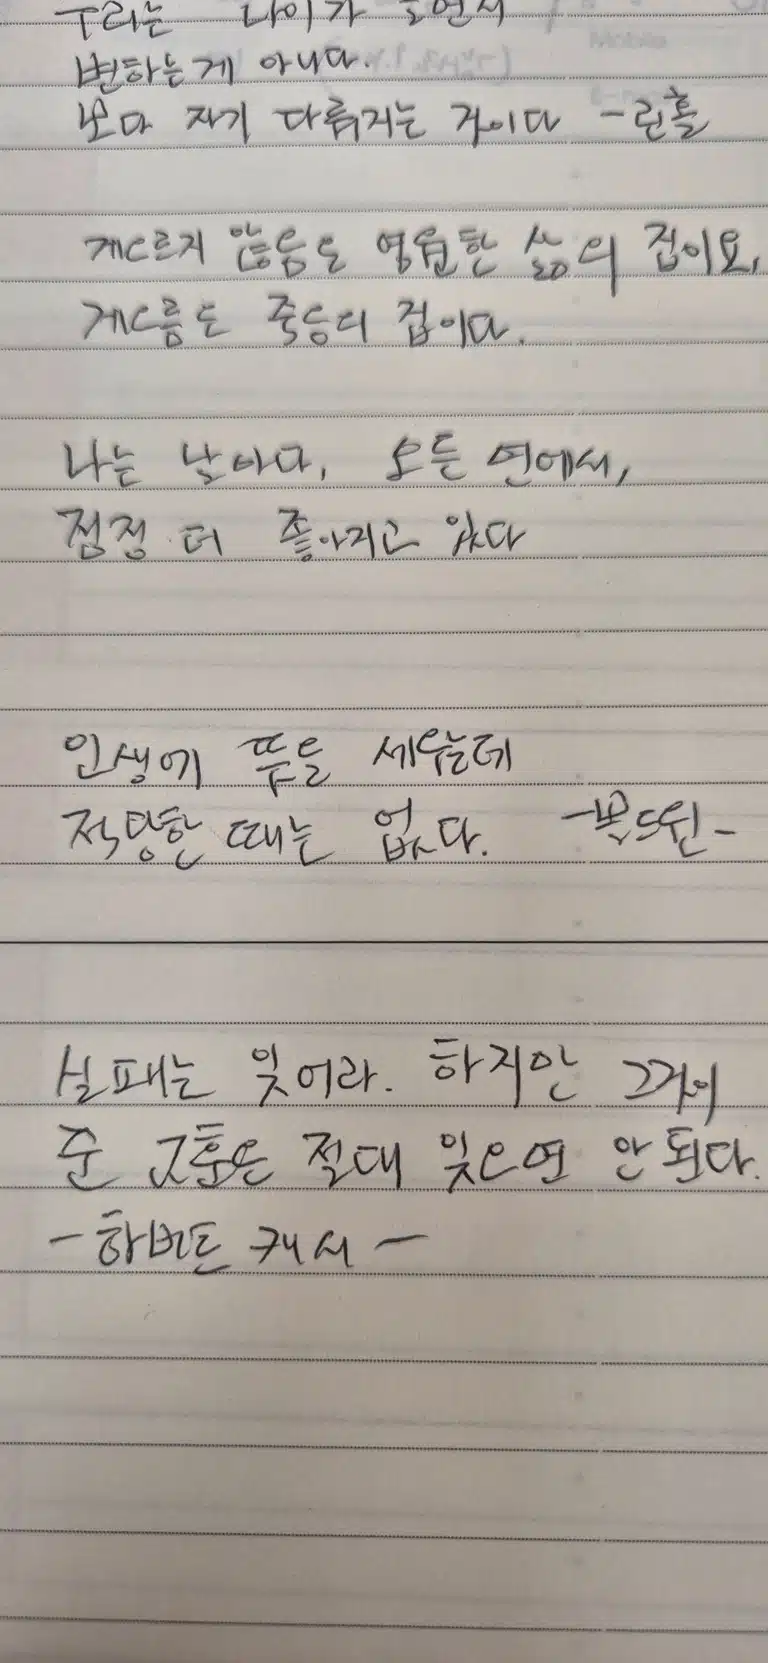 우리는 나이가 들면서
변하는게 아니다.
보다 자기 다워지는 것이다 -린홀
게으르지 않음은 영원한 삶의 집이요,
게으름은 죽음의 집이다.
나는 날마다, 모든 면에서,
점점 더 좋아지고 있다
인생에 뜻을 세우는데
적당한 때는 없다. -볼드윈-
실패는 잊어라. 하지만 그것이
준 교훈은 절대 잊으면 안된다.
-하버트 개서-